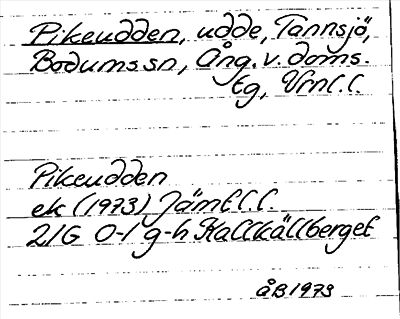 Pikeudden, udde, Tannsjö,
Bodums sn, Ång. v. doms.
tg, Vrnl. l.
Pikeudden
ek (1973) Jämt l. l.
21G 0-1 g-h Kallkällberget
åB 1973